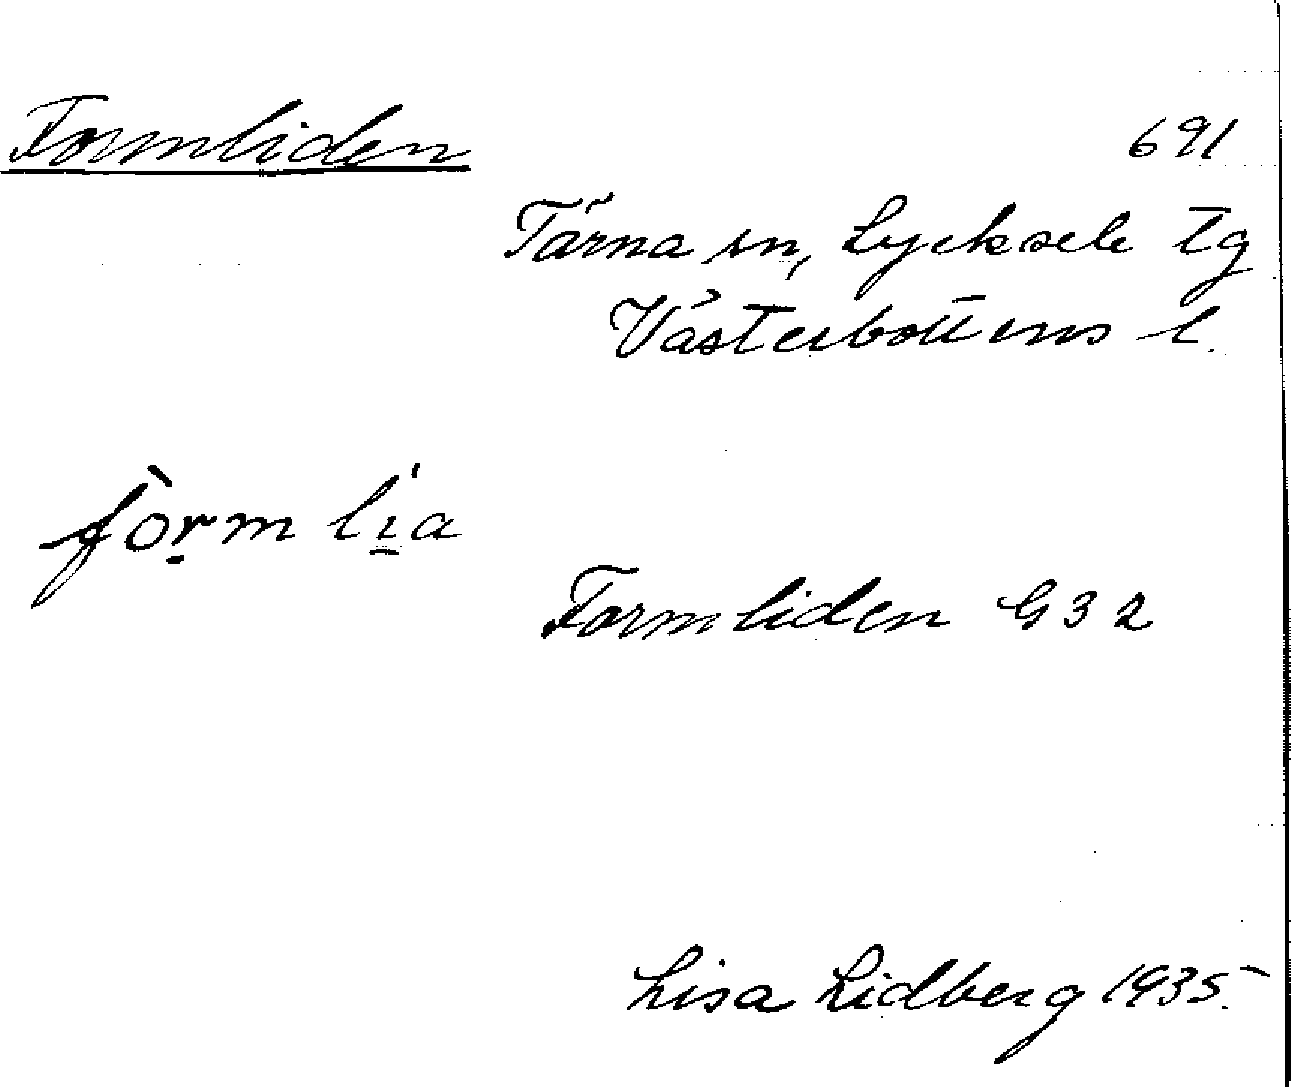 Formliden
691
Tärna sn, Lycksele tg
Västerbottens l.
fòrm lía
Formliden G32
Lisa Lidberg 1935.